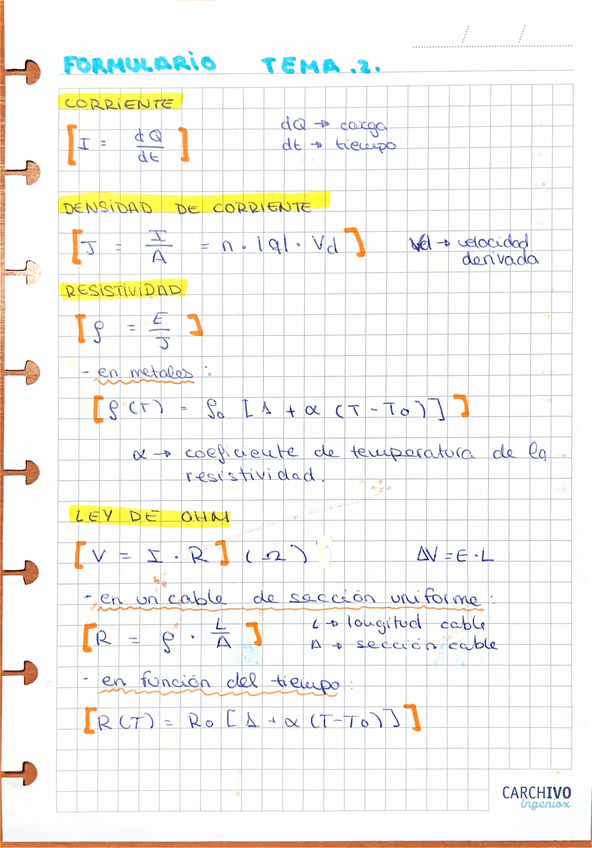 FORMULARIO TEMA.2.
CORRIENTE
[I = dQ/dt]
dQ → carga
dt → tiempo
DENSIDAD DE CORRIENTE
[J = I/A = n · |q| · Vd]
Vd → velocidad
derivada
RESISTIVIDAD
[ρ = E/J]
- en metales :
[ρ(T) = ρ₀ [1 + α (T - To)]]
α → coeficiente de temperatura de la
resistividad.
LEY DE OHM
[V = I · R] (Ω)
ΔV = E · L
- en un cable de sección uniforme :
[R = ρ · L/A]
L → longitud cable
A → sección cable
- en función del tiempo :
[R(T) = Ro [1 + α (T-To)]]
CARCHIVO
Ingeniox